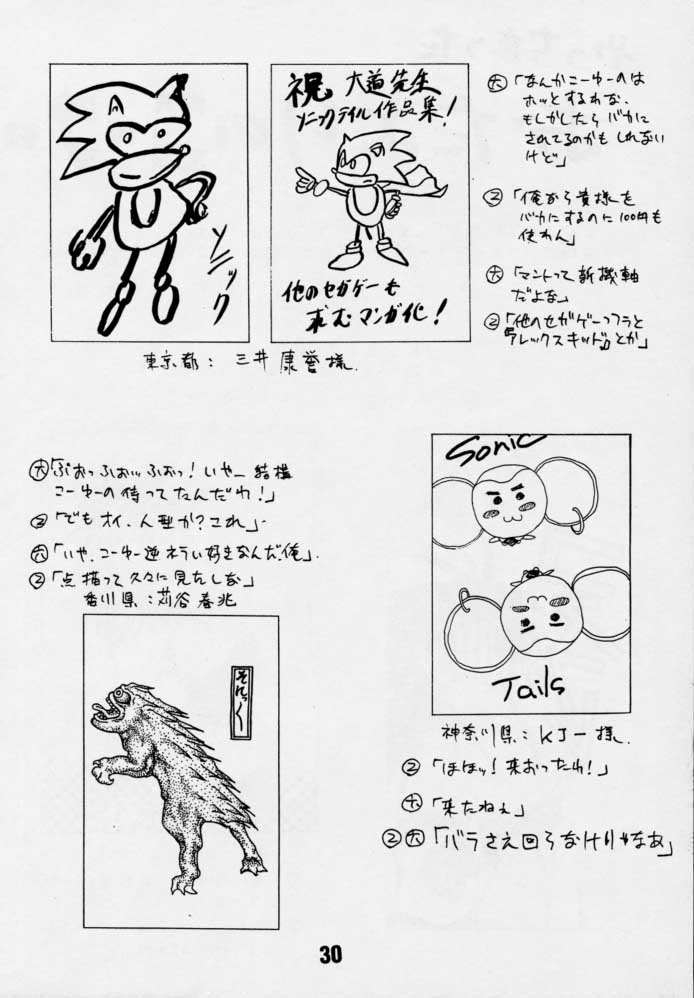 ソニック
祝 大道先生
ソニックテイル作品集!
他のセガゲーも
求むマンガ化!
東京都: 三井康誉様.
大「なんかこーゆーのは
ホッとするわな.
もしかしたらバカに
されてるのかもしれない
けど」
2「俺なら貴様を
バカにするのに100円も
使わん」
大「マントって新機軸
だよな」
2「他のセガゲーつフラと
『アレックスキッド』とか」
大「ぶおっふおッふおっ!いやー結構
こーゆーの待ってたんだわ!」
2「でもオイ、人型か?これ」
大「いや、こーゆー逆ネラい好きなんだ、俺」.
2「点描って久々に見たしな」
香川県:苅谷春兆
そにっく
Sonic
Tails
神奈川県: KJー様.
2「ほほッ!来おったわ!」
大「来たねぇ」
2大「バラさえ回らなけりゃなあ」
30